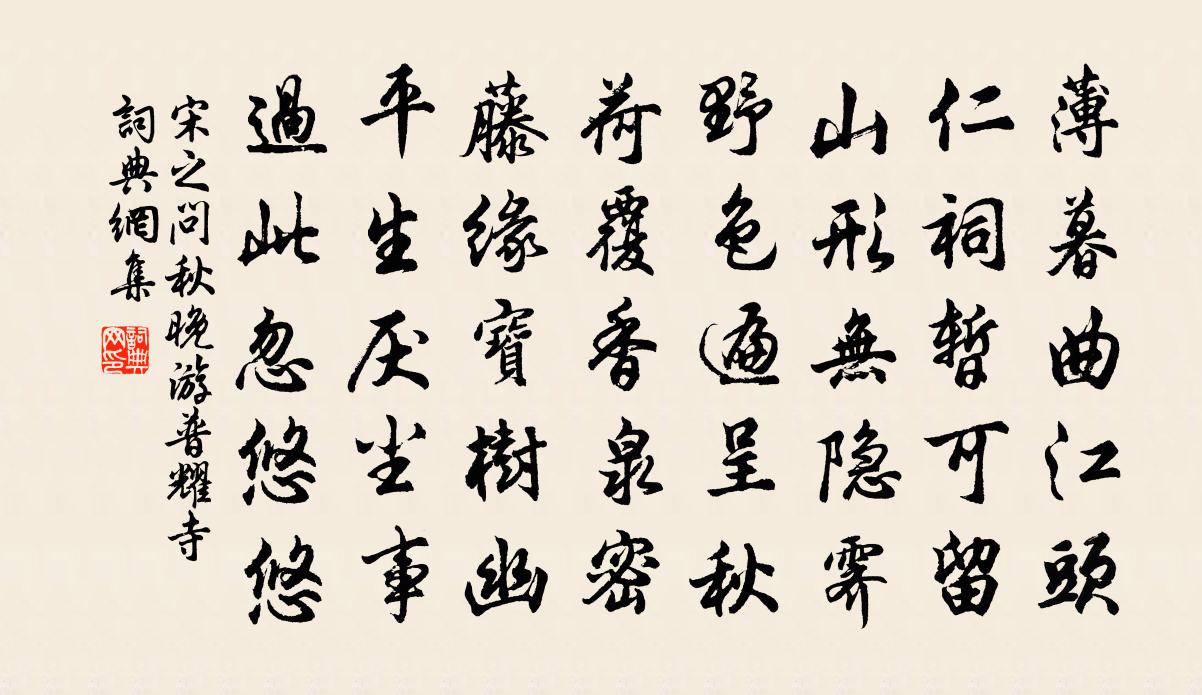 薄暮曲江頭
仁祠暫可留
山形無隐霽
野色遍呈秋
荷覆香泉密
藤缘寶樹幽
平生厌尘事
過此忽悠悠
宋之問秋晚游普耀寺
詞典網集
詞典網印